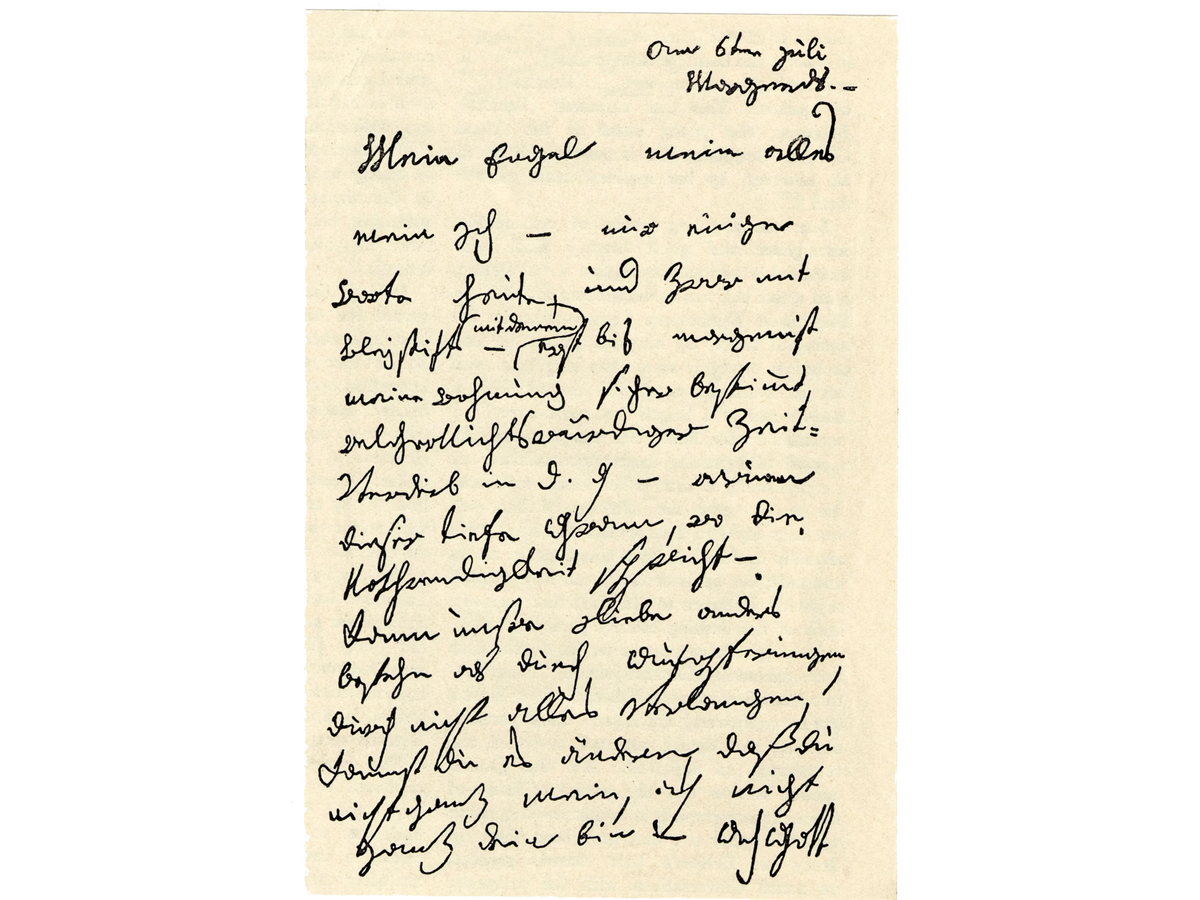 am 6ten juli
Morgends. –
Mein Engel mein alles
mein Ich – nur einige
Worte heute, und zwar mit
Bleystift – (mit deinem
erst bis morgen ist
meine Wohnung sicher bestimmt,
welcher Nichtswürdiger Zeit-
Verderb in d. g – warum
dieser tiefe Gram, wo die
Nothwendigkeit spricht –
Kann unsre Liebe anders
bestehn als durch Aufopferungen,
durch nicht alles Verlangen,
kannst du es ändern, daß du
nicht ganz mein, ich nicht
ganz dein bin – Ach Gott